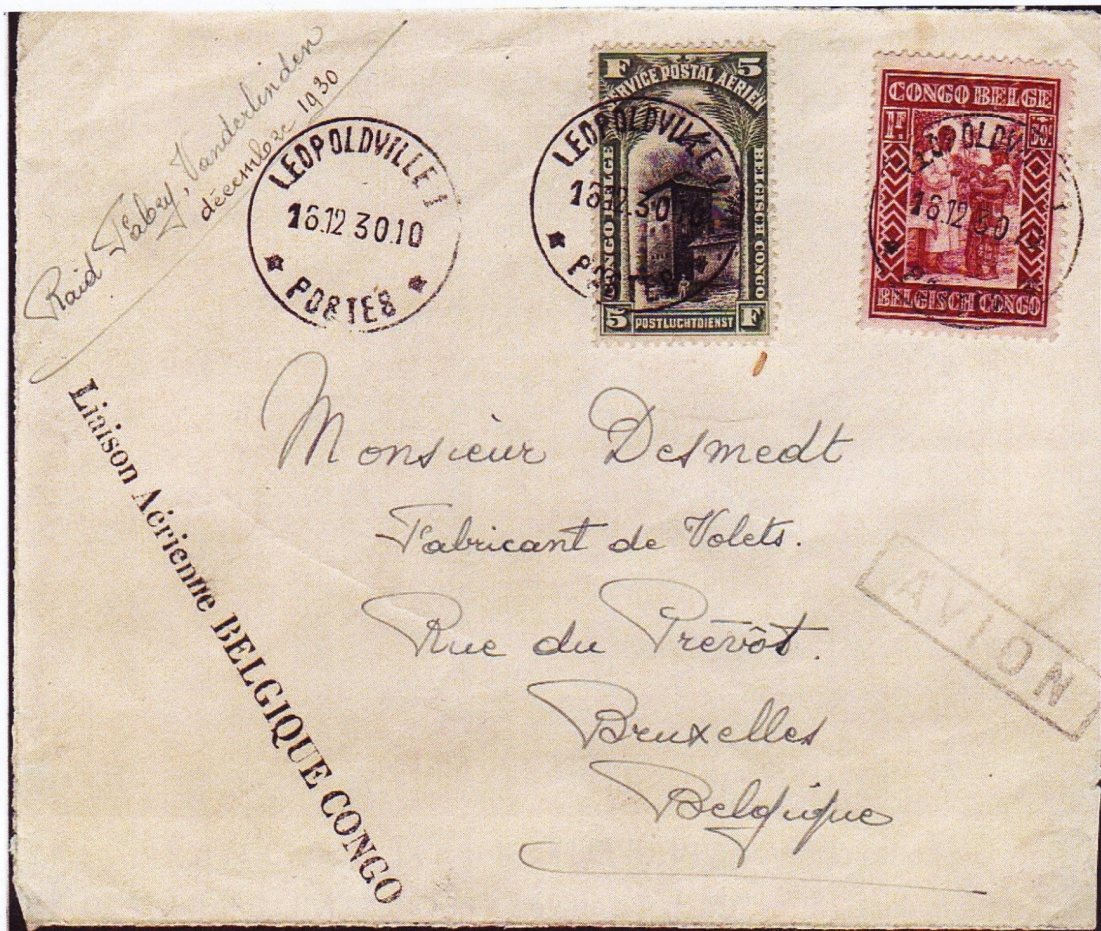 Raid Fabry, Vanderlinden
décembre 1930
LEOPOLDVILLE 1
16.12 30.10
POSTES
F 5
SERVICE POSTAL AÉRIEN
CONGO BELGE
BELGISCH CONGO
5 POSTLUCHTDIENST F
LEOPOLDVILLE 1
16.12.30.10
POSTES
CONGO BELGE
1F 50c
BELGISCH CONGO
LEOPOLDVILLE 1
16.12 30
Liaison Aérienne BELGIQUE CONGO
Monsieur Desmedt
Fabricant de Volets.
Rue du Prévôt.
Bruxelles
Belgique
AVION